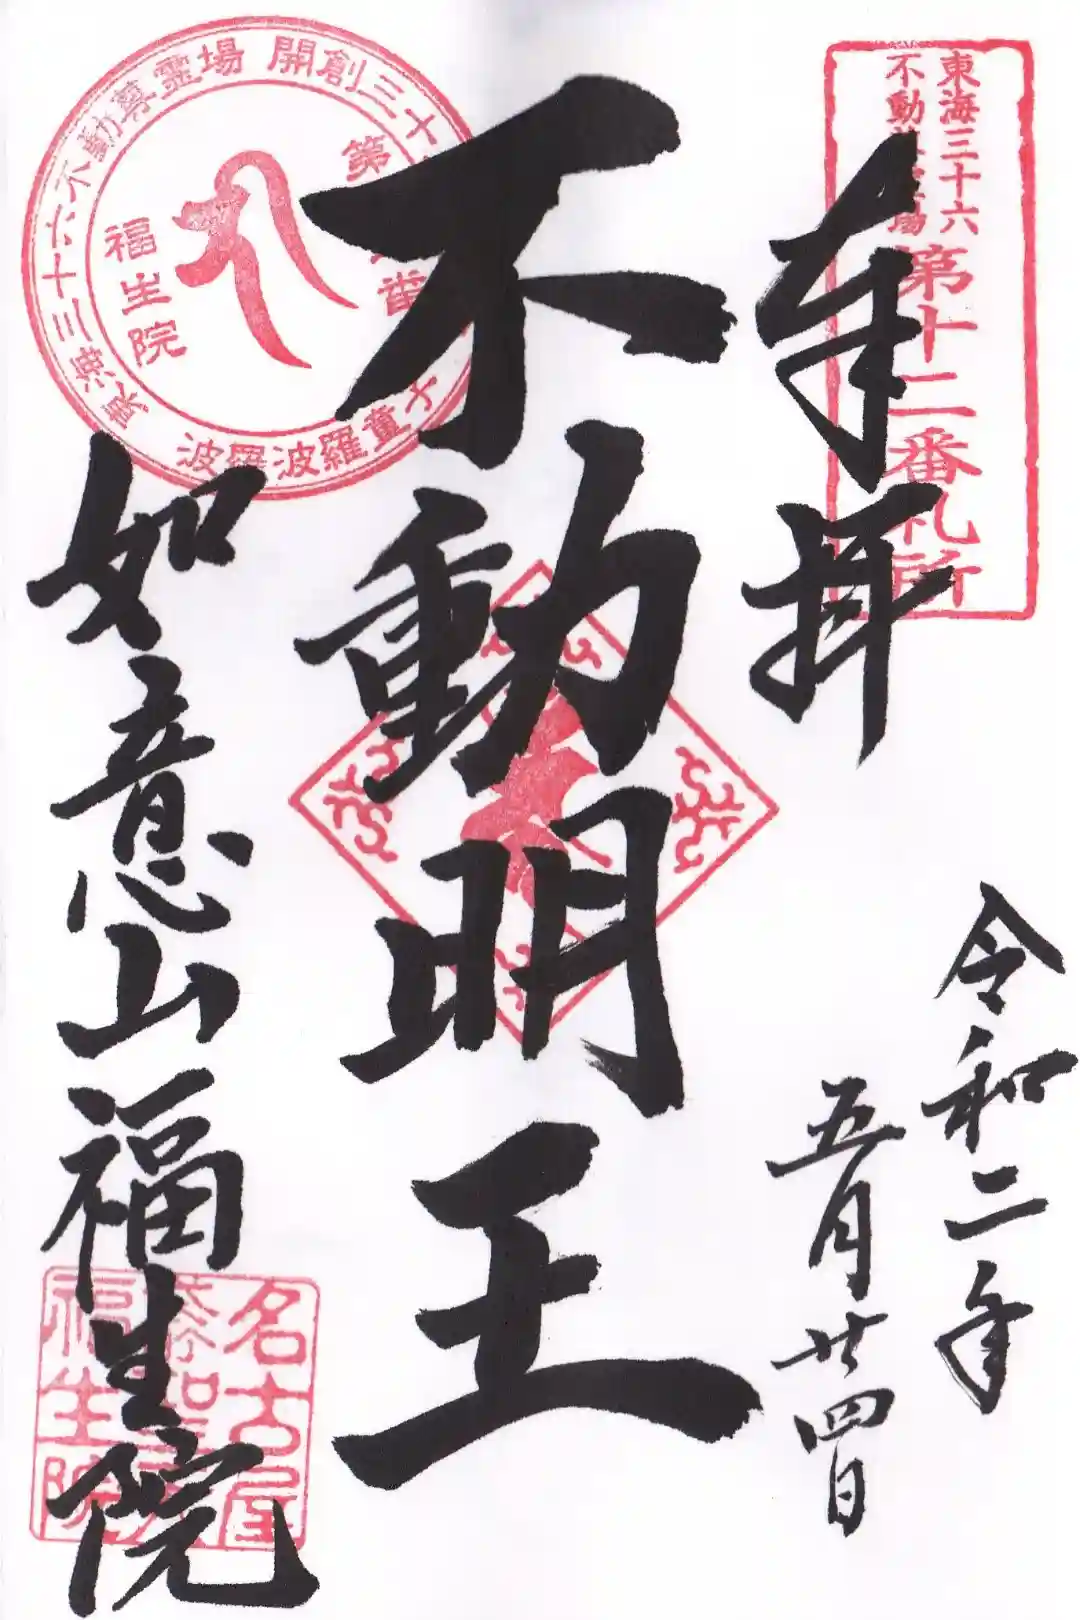 奉拝
令和二年
五月廿四日
不動明王
如意山福生院
東海三十六
不動尊霊場
第十二番札所
東海三十六不動尊霊場 開創三十
第
番
福生院
波羅波羅童子
名古屋
袋町聖天
福生院